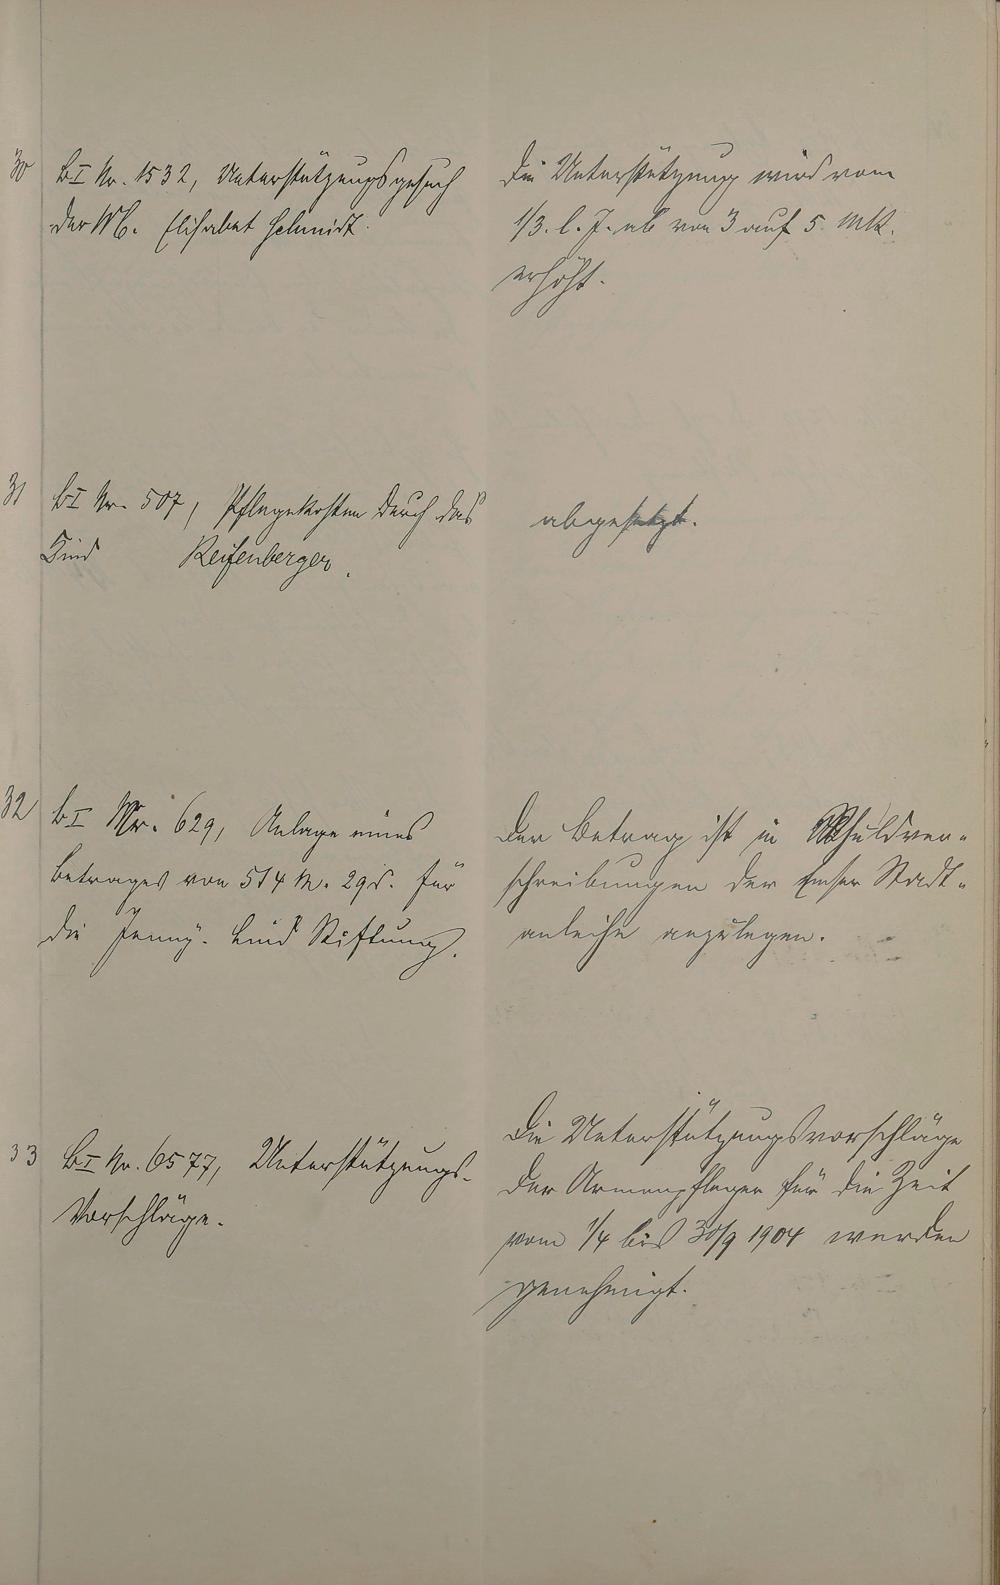 30 B I Nr. 1532, Unterstützungsgesuch
der Wb. Elisabet Schmidt.
Die Unterstützung wird vom
1/3. l. J. ab von 3 auf 5 Mk.
erhöht.
31 B I Nr. 507, Pflegekosten durch das
Kind Reifenberger.
abgesetzt.
32 B I Nr. 629, Anlage eines
Betrages von 514 M. 29 d. für
die Jenny-Lind Stiftung.
Der Betrag ist in Schuldver-
schreibungen der Emser Stadt-
anleihe anzulegen.
33 B I Nr. 6577, Unterstützungs-
Vorschläge.
Die Unterstützungsvorschläge
der Armenpfleger für die Zeit
vom 1/4 bis 30/9 1904 werden
genehmigt.